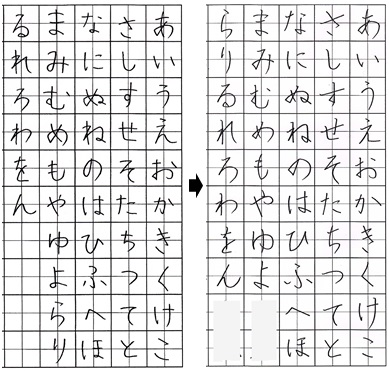 あいうえおかきくけこ
さしすせそたちつてと
なにぬねのはひふへほ
まみむめもやゆよらり
るれろわをん
あいうえおかきくけこ
さしすせそたちつてと
なにぬねのはひふへほ
まみむめもやゆよ
らりるれろわをん